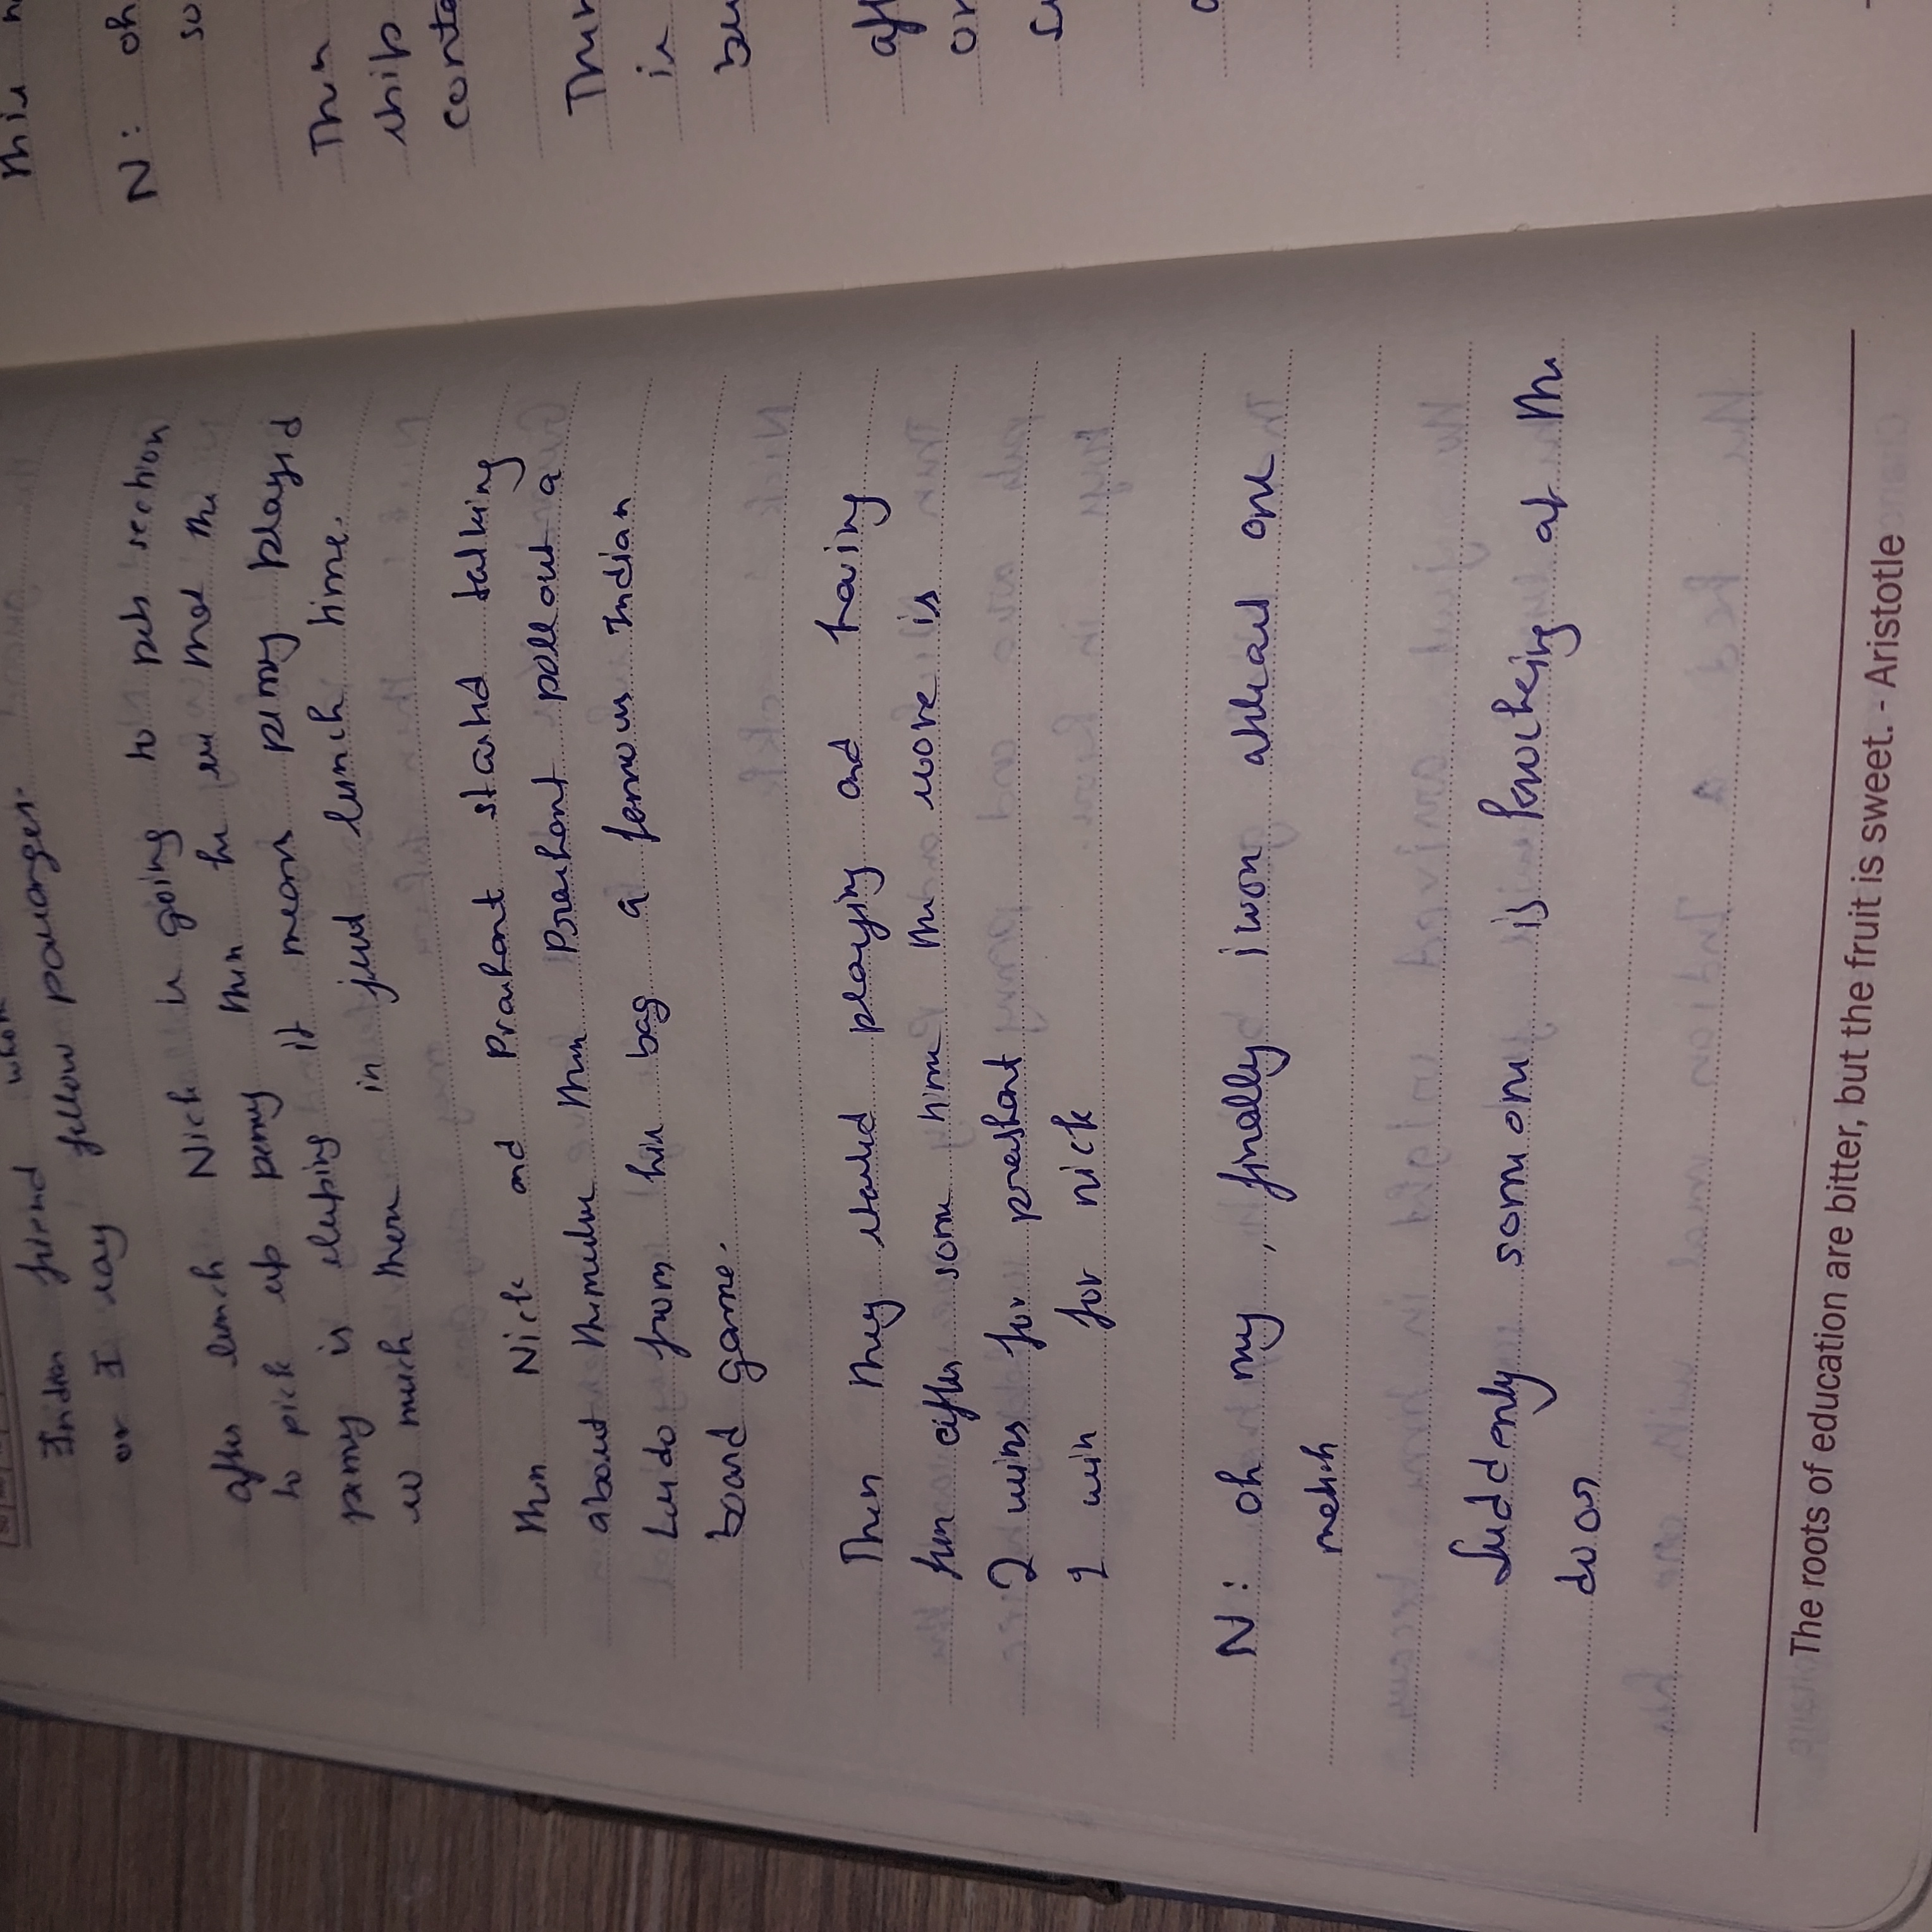 Indian friend whom
or I say fellow passanger.
after lunch Nick is going to pets section
to pick up penny then he see that the
penny is sleeping it means penny played
so much there in just lunch time.
then Nick and Prashant started talking
about themselve then Prashant pollout a
Ludo from his bag a famous Indian
board game.
Then they started playing and having
fun after some time the score is
2 wins for prashant
1 win for nick
N: oh my, finally i won atleast one
match
Suddenly someone is knocking at the
door
The roots of education are bitter, but the fruit is sweet. - Aristotle
this
N: oh
so
Then
ship
in